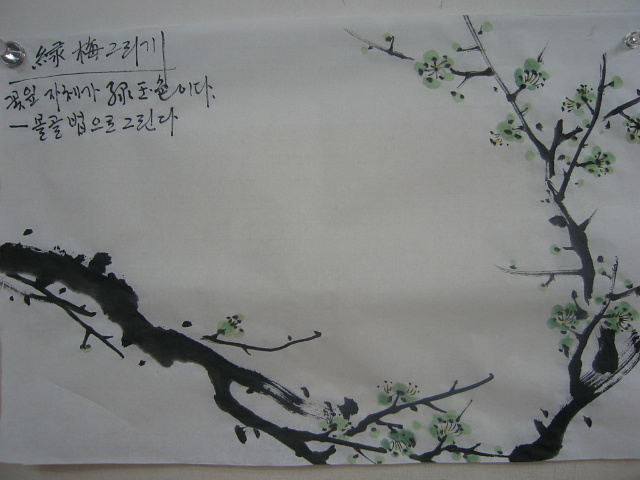 綠梅그리기
꽃잎 자체가 綠玉色이다.
－몰골법으로 그린다